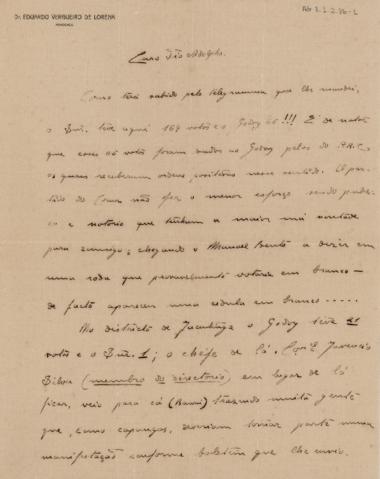 Dr. EDUARDO VERGUEIRO DE LORENA
Caro Tio Adolpho.
Como terá sabido pelo telegramma que lhe mandei,
o Dr. teve aqui 169 votos e o Godoy 66 !!! É de notar
que esses 66 votos foram dados ao Godoy pelos do P.R.C.
os quaes receberam ordens positivas nesse sentido. O par-
tido do não fez o menor esforço sendo publi-
co e notorio que tinham a maior má vontade
para comigo; chegando o Manuel Bento a dizer em
uma roda que provavelmente votaria em branco —
de facto appareceu uma cedula em branco .....
No districto de Jacutinga o Godoy teve 21
votos e o Dr. 1; o chefe de lá, Juvencio
Silva (membro do directorio) em logar de lá
ficar, veio para cá trazendo muita gente
que, como capangas, deveriam tomar parte numa
manifestação conforme boletim que lhe envio.